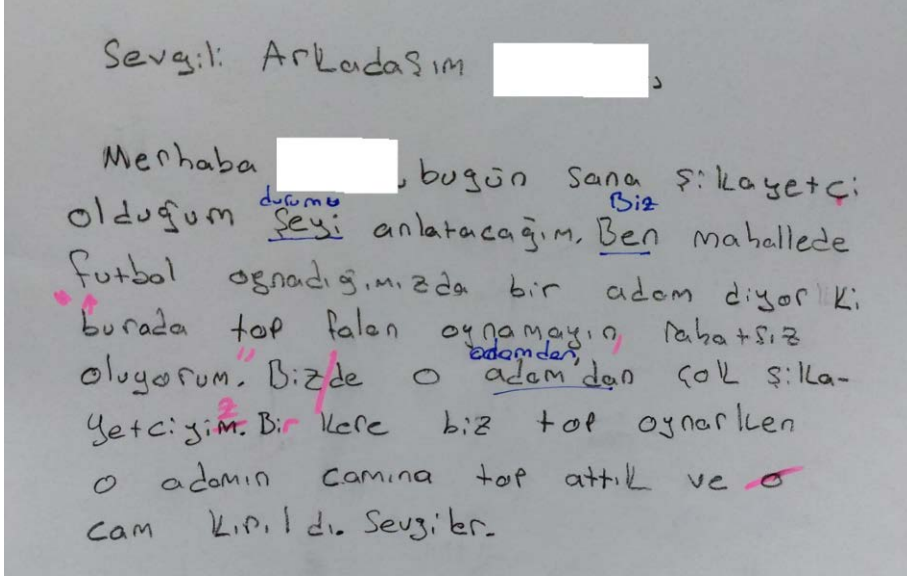 Sevgili Arkadaşım ,
Merhaba , bugün sana şikayetçi
durumu Biz
olduğum şeyi anlatacağım. Ben mahallede
futbol oynadığımızda bir adam diyor ki
"burada top falan oynamayın, rahatsız
adamdan,
oluyorum." Biz/de o adam'dan çok şika-
z
yetciyim. Bir kere biz top oynarken
o adamın camına top attık ve o
cam kırıldı. Sevgiler.